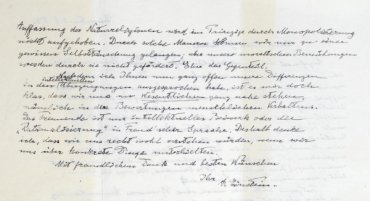 Auffassung des Naturreligiösen wird im Prinzip durch Monopolisierung
nicht aufgehoben. Durch solche Mauern können wir nur zu einer
gewissen Selbsttäuschung gelangen, aber unsere moralischen Bemühungen
werden durch sie nicht gefördert. Eher das Gegenteil.
Nachdem ich Ihnen nun ganz offen unsere Differenzen
in den intellektuellen Überzeugungen ausgesprochen habe, ist es mir doch
klar, dass wir uns im Wesentlichen ganz nahe stehen,
nämlich in den Bewertungen menschlichen Verhaltens.
Das Trennende ist nur intellektuelles Beiwerk oder die
"Rationalisierung" in Freud'scher Sprache. Deshalb denke
ich, dass wir uns recht wohl verstehen würden, wenn wir
uns über konkrete Dinge unterhielten.
Mit freundlichem Dank und besten Wünschen
Ihr
A. Einstein.